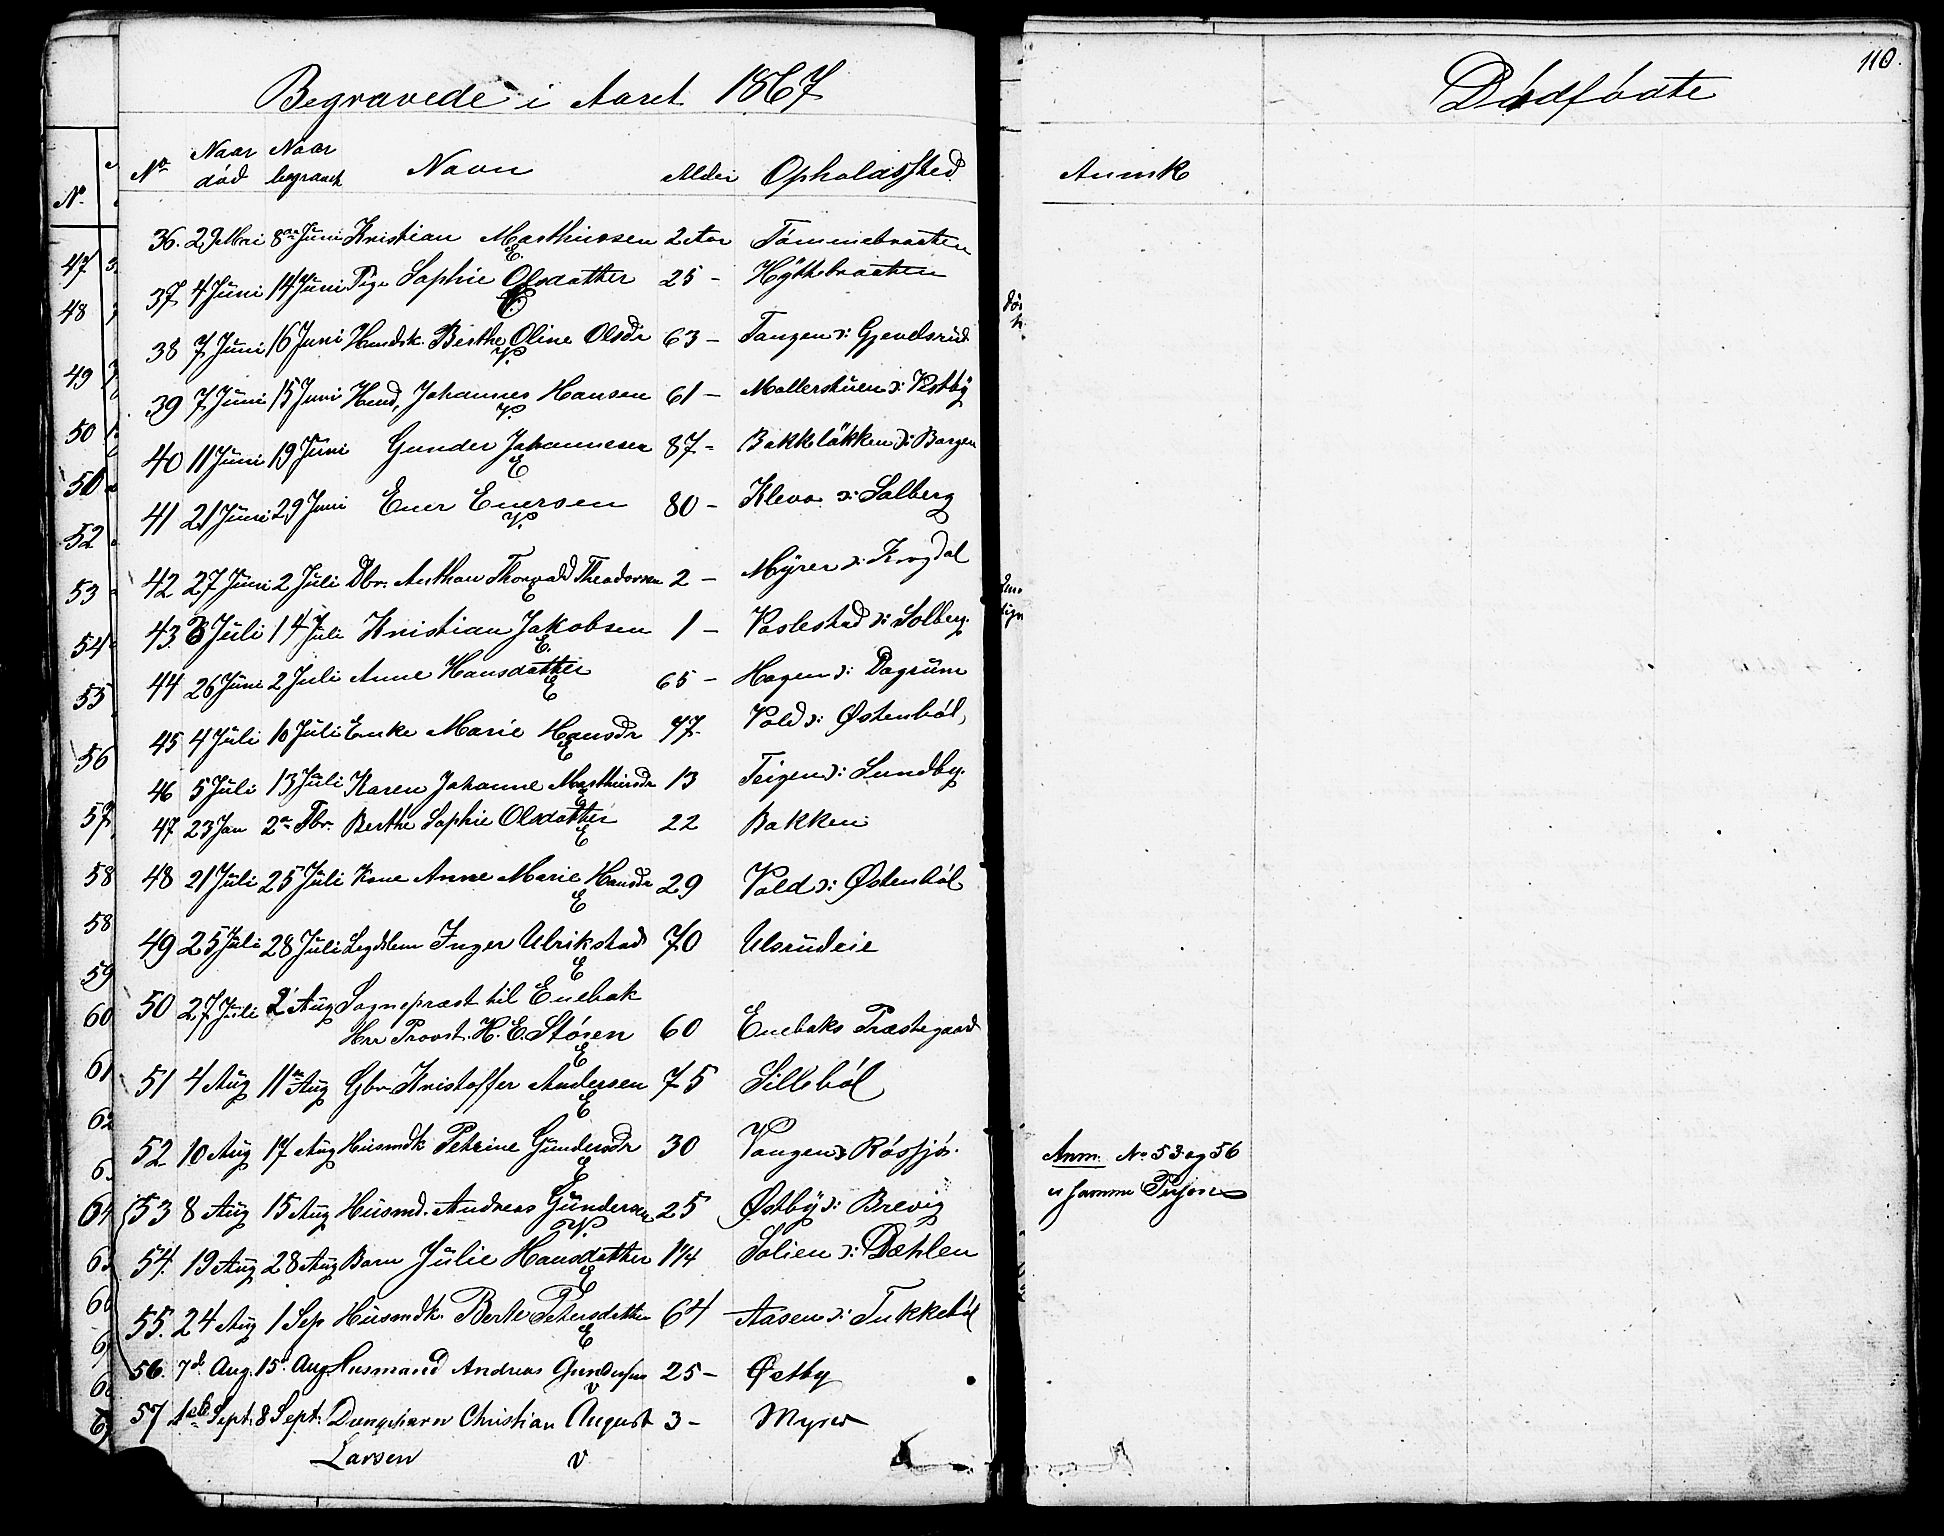 Begravede i Aaret 1867
No Naar død Naar begravet Navn Alder Opholdssted
36. 29 Mai 8de Juni Kristian Marthinssen 2 Aar Tømmebraaten
E.
37 4 Juni 14 Juni Pige Sophie Olsdatter 25 - Hyttebraaten
E.
38 7 Juni 16 Juni Huusmdk. Berthe Oline Olsdr 63 - Tangen ɔ: Gjevelsrud
V.
39 7 Juni 15 Juni Husmd, Johannes Hansen 61 - Møllerstuen ɔ: Vestby
V.
40 11 Juni 19 Juni Gunder Johannesen 87 - Bakkløkken ɔ: Børgen
E
41 21 Juni 29 Juni Ener Enersen 80 - Kleva ɔ: Solberg
V.
42 27 Juni 2 Juli Dbr. Anthon Thorvald Theodorsen 2 - Myrer ɔ: Krogdal
E
43. 8 Juli 14 Juli Kristian Jakobsen 1 - Vaslestad ɔ: Solberg.
E.
44 26 Juni 2 Juli Anne Hansdatter 65 - Hagen ɔ: Dagrum
E
45 4 Juli 10 Juli Enke Marie Hansdr 77. Vold ɔ: Østenbøl,
E
46 5 Juli 13 Juli Karen Johanne Marthinsdr 13 Teigen ɔ: Lundby.
E
47 23 Jan 2den Fbr. Berthe Sophie Olsdatter 22 Bakken
E
48 21 Juli 25 Juli Kone Anne Marie Hansdr 29 Vold ɔ: Østenbøl
E
49 25 Juli 28 Juli Legdslem Inger Ulrikstad 70 Ulsrudeie
E
50 27 Juli 2 Aug Sognepræst til Enebak
Hrr Provst. H. E. Støren 60 Enebaks Præstegaard
E
51 4 Aug 11te Aug Gbr. Kristoffer Andersen 75 Lillebøl
E
52 10 Aug 17 Aug Husmdk Petrine Gundersdr 30 Vangen ɔ: Røssjø.
E
53 8 Aug 15 Aug Husmd. Andreas Gundersen 25 Østby ɔ: Brevig
V.
54. 19 Aug 28 Aug Barn Julie Hansdatter 1 1/4 Solien ɔ: Dæhlen
E
55. 24 Aug 1 Sep Husmdk. Berte Petersdatter 64 Aasen ɔ: Tukkebøl
E
56. 7de Aug. 15de Aug. Husmand Andreas Gundersen 25 - Østby
v
57 1ste Sept. 8 Sept. Christian August 3 - Myrer
Larsen v
No
47
48
49
50
51
52
53
54
55
56
57
58
58
59
60
61
62
64
Dødfødte
110.
Anmk
Anm. No 53 og 56
er samme Person